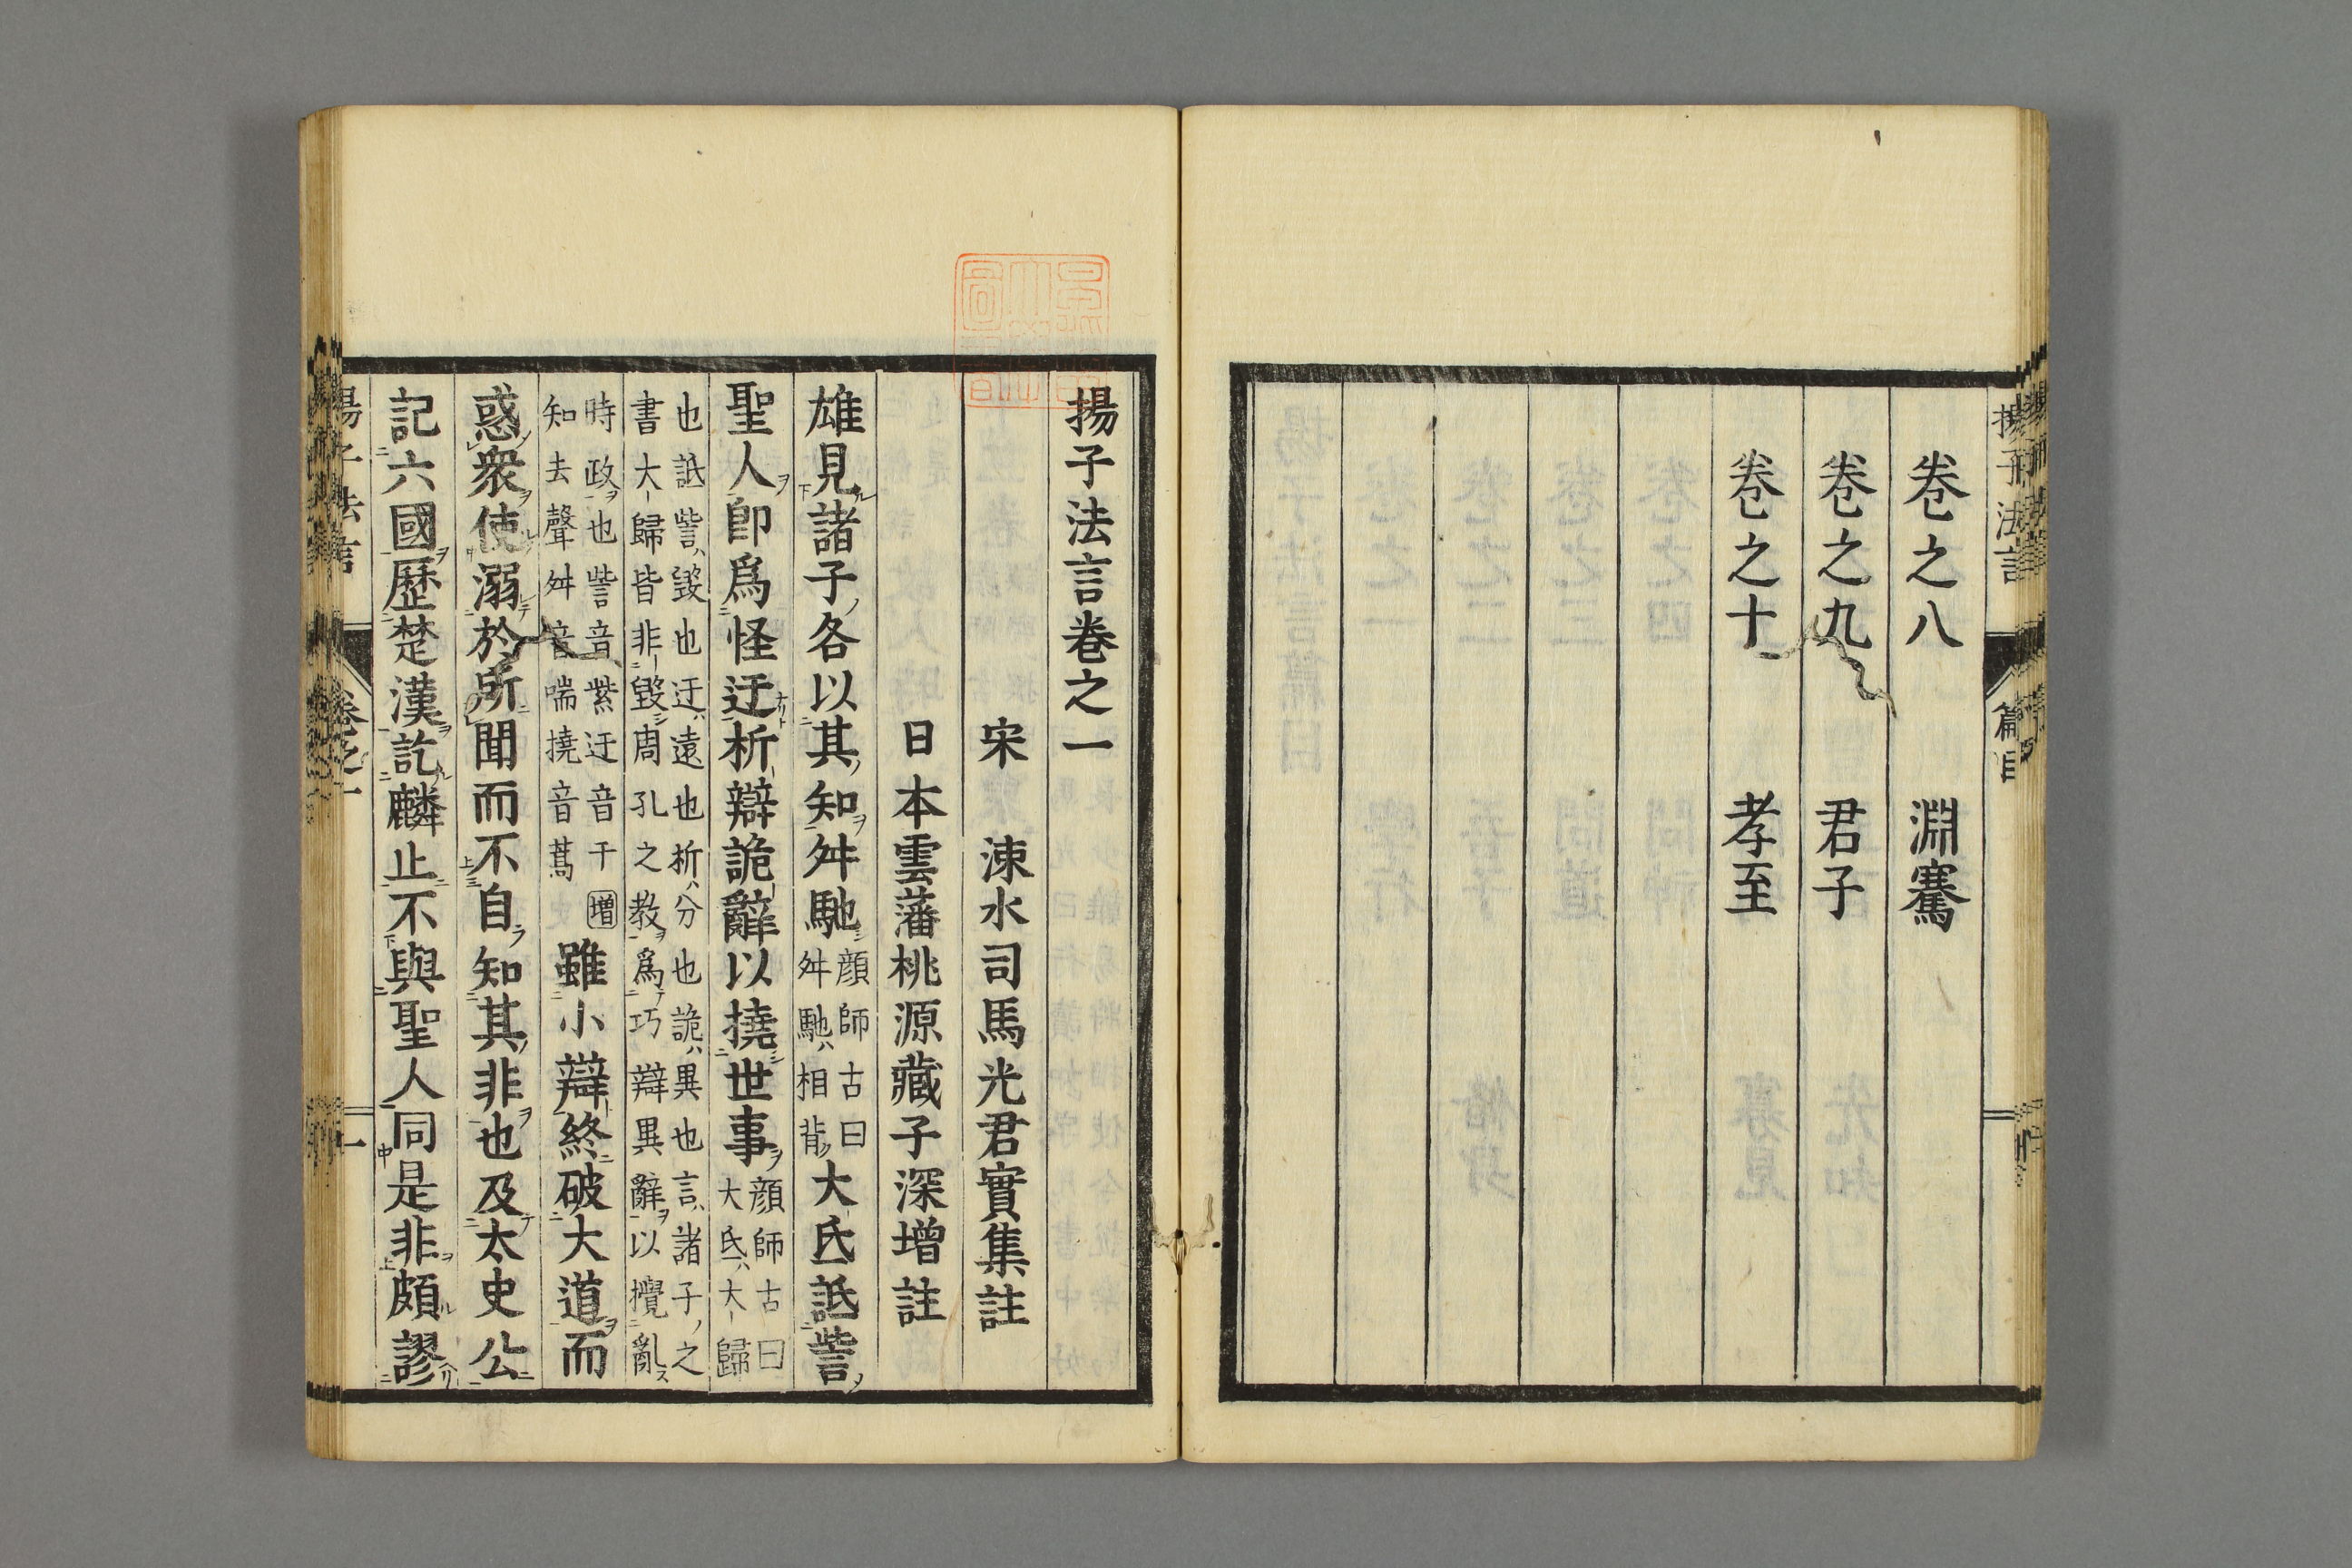 揚子法言
篇目
卷之八 淵騫
卷之九 君子
卷之十 孝至
揚子法言卷之一
宋 涑水司馬光君實集註
日本雲藩桃源藏子深增註
雄見諸子各以其知舛馳
顏師古曰
舛馳相背
大氐詆訾
聖人卽爲怪迂析辯詭辭以撓世事
顏師古曰
大氐大歸
也詆訾毀也迂遠也析分也詭異也言諸子之
書大歸皆非毀周孔之教爲巧辯異辭以攪亂
時政也訾音紫迂音干
知去聲舛音喘撓音蒿
增
雖小辯終破大道而
惑衆使溺於所聞而不自知其非也及太史公
記六國歷楚漢訖麟止不與聖人同是非頗謬
卷之一
一